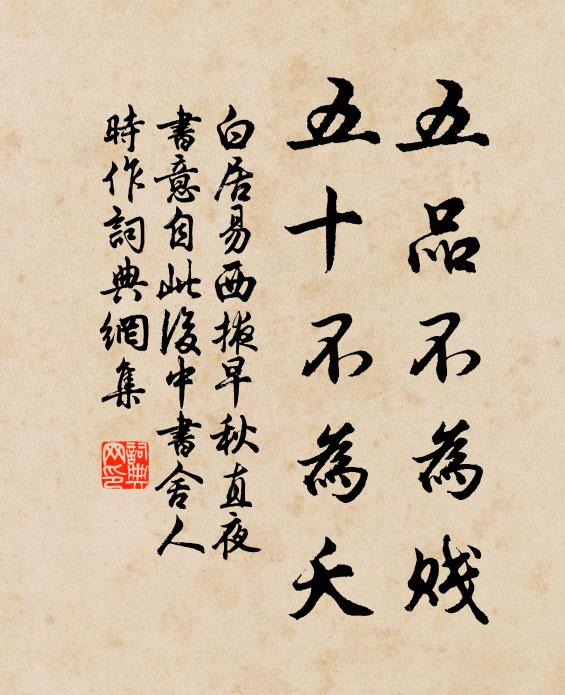 五品不為賤
五十不為夭
白居易西掖早秋直夜
書意自此後中書舍人
時作詞典網集
詞典网印